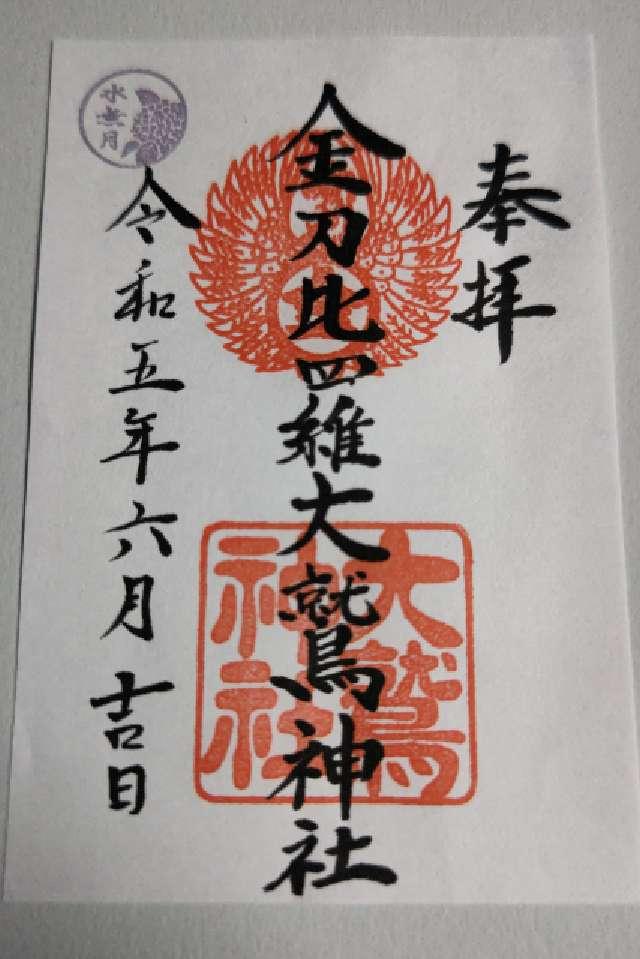 奉拝
金刀比羅大鷲神社
大鷲神社社
令和五年六月吉日
水無月